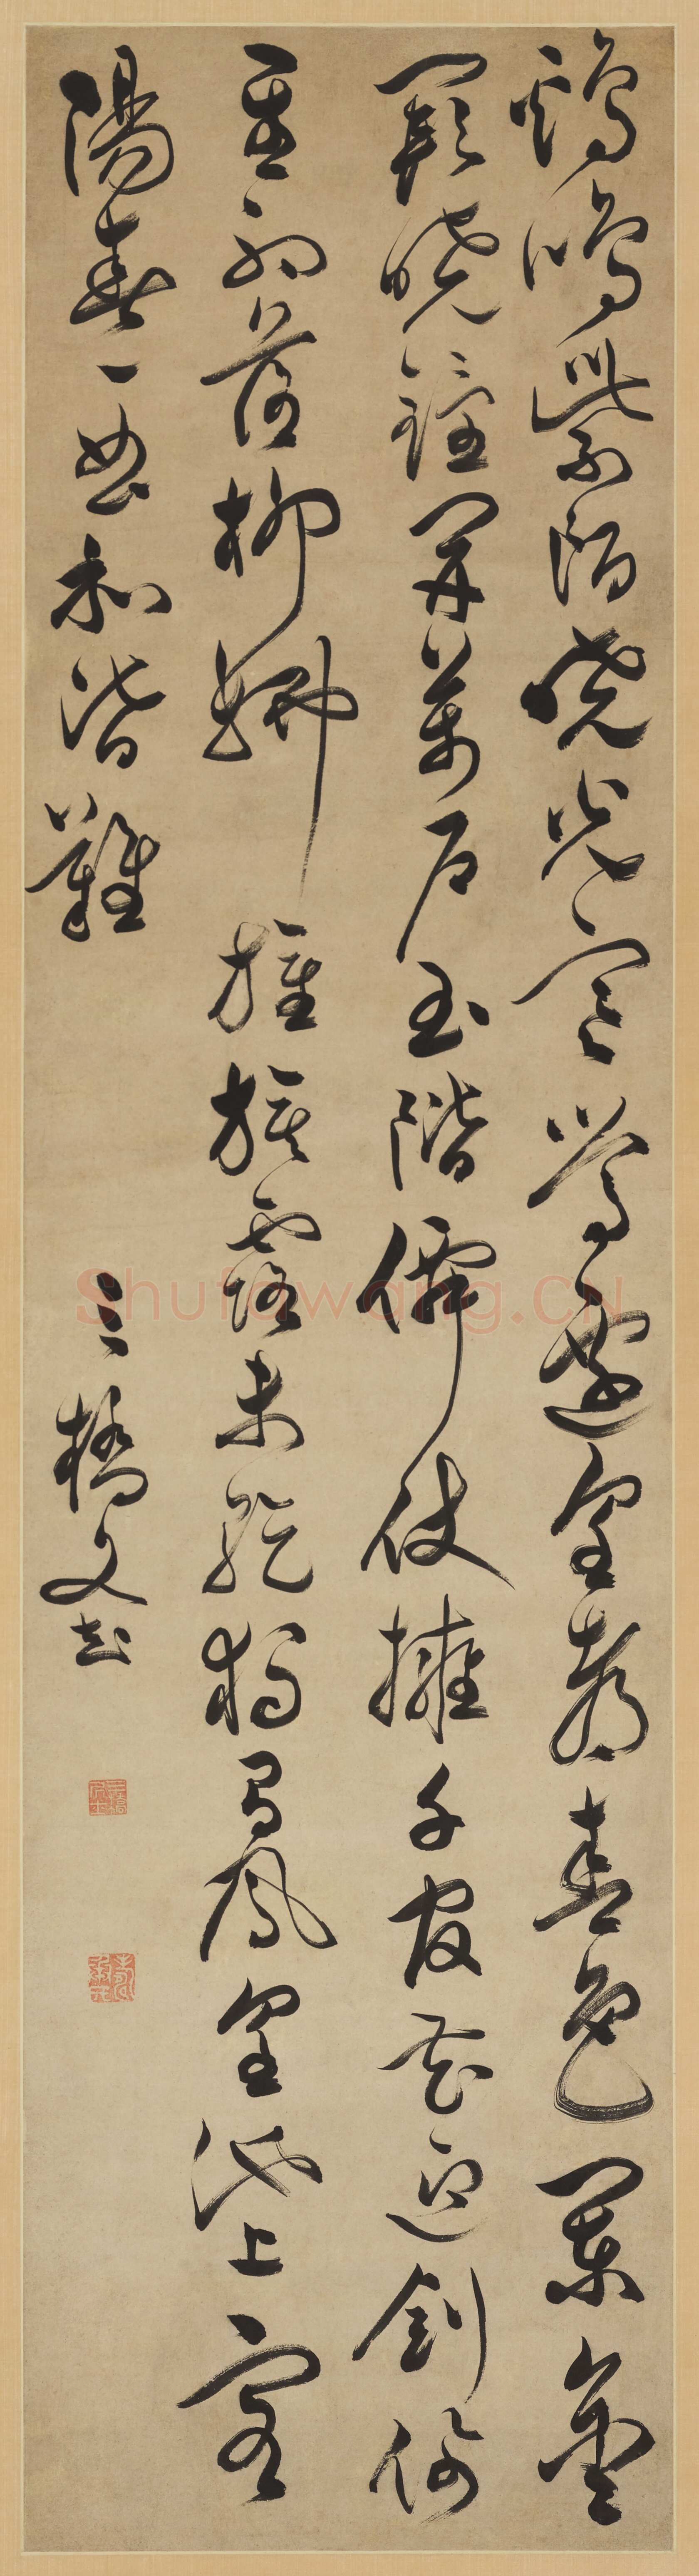 鷄鳴紫陌曉光寒鶯遷皇都春色闌金
闕曉鐘開萬戶玉階僊仗擁千官花迎劍佩
星初落柳拂旌旗露未乾獨有鳳皇池上客
陽春一曲和皆難
三橋文彭
Shufawang.CN